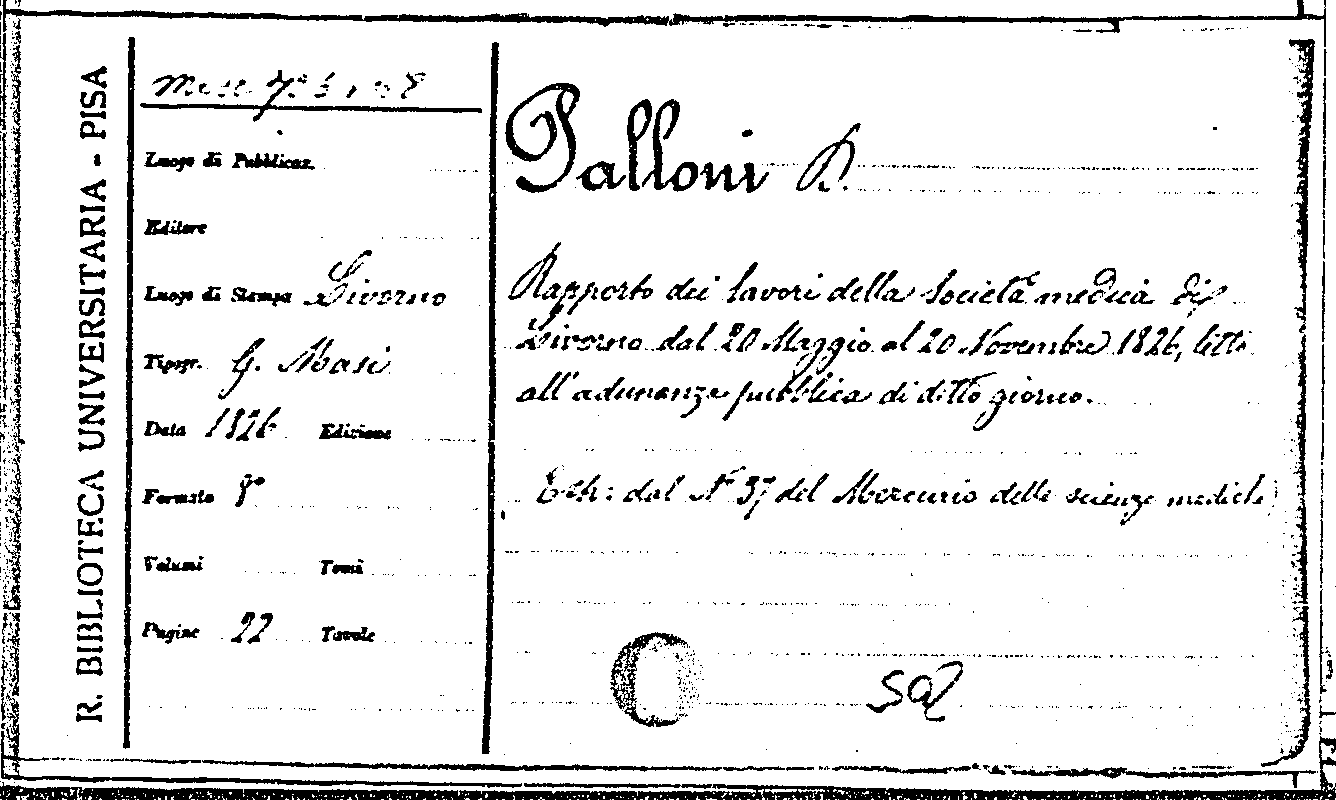 R. BIBLIOTECA UNIVERSITARIA - PISA
Misc
Luogo di Pubblicaz.
Editore
Luogo di Stampa Livorno
Tipogr. G. Masi
Data 1826 Edizione
Formato 8°
Volumi Tomi
Pagine 22 Tavole
Palloni
Rapporto dei lavori della Società medica di
Livorno dal 20 Maggio al 20 Novembre 1826, letto
all'adunanza pubblica di ditto giorno.
Estr: dal N° 37 del Mercurio delle scienze mediche